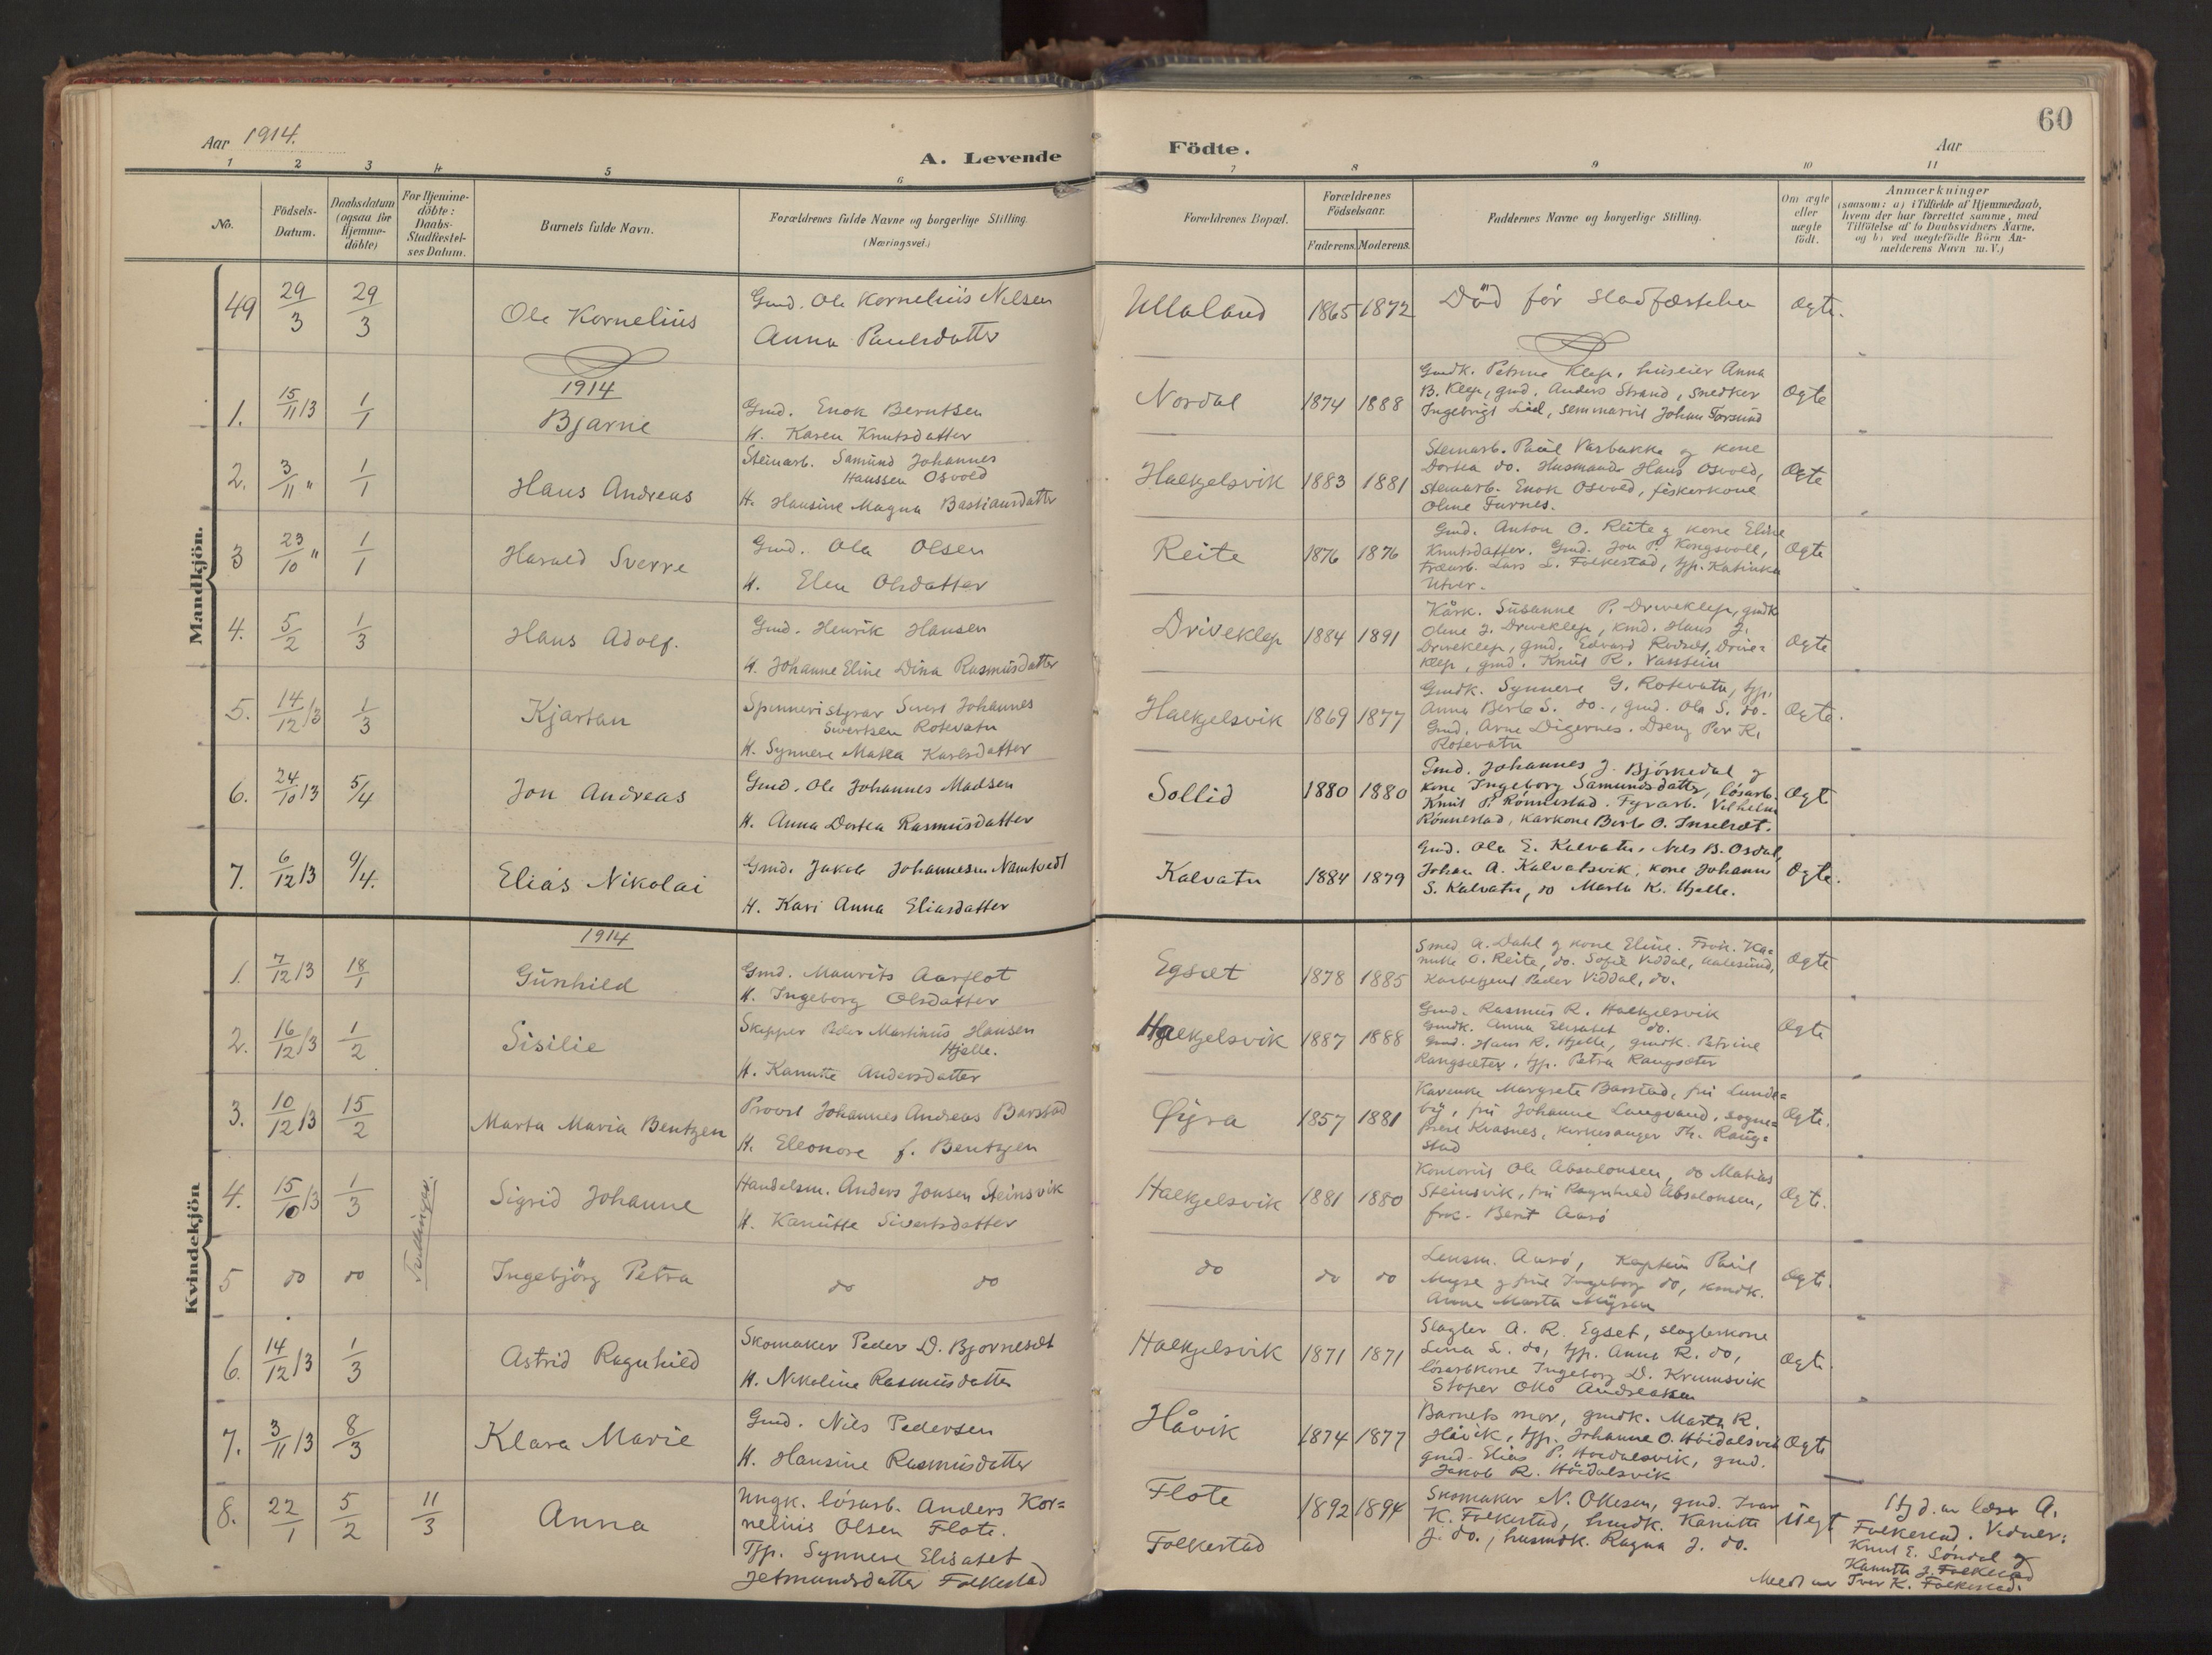 60
Aar 1914.
A. Levende Födte.
Aar
1 2 3 4 5 6 7 8 9 10 11
No.
Födsels-
Datum.
Daabsdatum
(ogsaa for
Hjemme-
döbte)
For Hjemme-
döbte:
Daabs-
Stadfæstel-
ses Datum.
Barnets fulde Navn.
Forældrenes fulde Navne og borgerlige Stilling.
(Næringsvei.)
Forældrenes Bopæl.
Forældrenes
Födselsaar.
Faderens. Moderens.
Faddernes Navne og borgerlige Stilling.
Om ægte
eller
uægte
födt.
Anmærkninger
(saasom: a) i Tilfælde af Hjemmedaab,
hvem der har forrettet samme, med
Tilföielse af to Daabsvidners Navne,
og b) ved uægtefödte Börn An-
melderens Navn m. V.)
Mandkjön.
49 29/3 29/3
Ole Kornelius
Gmd. Ole Kornelius Nilsen
Anna Paulsdatter
Ullaland 1865 1872
Död för stadfæstelse
Ogte.
1914
1. 15/11 13 1/1
Bjarne
Gmd. Enok Berntsen
H. Karen Knutsdatter
Nordal 1874 1888
Gmdk. Petrine Klep, huseier Anna
B. Klep, gmd. Anders Strand, snedker
Ingebrigt Lid, seminarist Johan Torsund
Ogte
2. 3/11 " 1/1
Hans Andreas
Steinarb. Samund Johannes
Hanssen Osvold
H. Hansine Magna Bastiansdatter
Halkjelsvik 1883 1881
Steinarb. Paul Varbakke og kone
Dortea do. Husmand Hans Osvold,
steinarb. Enok Osvold, fiskerkone
Oline Furnes.
Ogte
3 23/10 " 1/1
Harald Sverre
Gmd. Ola Olsen
H. Elen Olsdatter
Reite 1876 1876
Gmd. Anton O. Reite og kone Eline
Knutsdatter. Gmd. Jon P. Kongsvoll,
træarb. Lars L. Folkestad, tjp. Katinka
Utver.
Ogte
4. 5/2 1/3
Hans Adolf.
Gmd. Henrik Hansen
H. Johanne Eline Dina Rasmusdatter
Driveklep 1884 1891
Kårk. Susanne P. Driveklep, gmdk
Oline J. Driveklep, kmd. Hans J.
Driveklep, gmd. Edvard Driveklep,
gmd. Knut R.
Ogte
5. 14/12 13 1/3
Kjartan
Spinneristyrar Sivert Johannes
Sivertsen Rotevatn
H. Synnere Matea Karlsdatter
Halkjelsvik 1869 1877
Gmdk. Synnere G. Rotevatn, tjp.
Anna Berte S. do., gmd. Ola S. do.
Gmd. Arne Digernes. Dreng Per K.
Rotevatn
Ogte.
6. 24/10 13 5/4
Jon Andreas
Gmd. Ole Johannes Madsen
H. Anna Dortea Rasmusdatter
Sollid 1880 1880
Gmd. Johannes J. Björkedal og
kone Ingeborg Samundsdatter, lösarb.
Knut P. Rönnestad. Fyrarb. Vilhelm
Rönnestad, karkone Berte O. Inselset.
Ogt
7. 6/12 13 9/4.
Elias Nikolai
Gmd. Jakob Johannesen Namtvedt
H. Kari Anna Eliasdatter
Kalvatn 1884 1879
Gmd. Ola E. Kalvatn, Nils B. Osdal,
Johan A. Kalvatsvik, kone Johanne
S. Kalvatn, do Marta K. Hjelle.
Ogte.
Kvindekjön
1914
1. 7/12 13 18/1
Gunhild
Gmd. Maurits Aarflot
H. Ingeborg Olsdatter
Egset 1878 1885
Smed A. Dahl og kone Eline. Frök. Ka-
nutte O. Reite, do. Sofie Viddal, Aalesund,
Peder Viddal, do.
Ogte
2. 16/12 13 1/2
Sisilie
Skipper Peder Martinus Hansen
Hjelle.
H. Kanutte Andersdatter
Halkjelsvik 1887 1888
Gmd. Rasmus R. Halkjelsvik
Gmdk. Anna Elisabet do.
Gmd. Hans R. Hjelle, gmdk. Petrine
Rangsæter, tjp. Petra Rangsæter
Ogte
3. 10/12 13 15/2
Marta Maria Bentzen
Provst Johannes Andreas Barstad
H. Eleonore f. Bentzen
Øyra 1857 1881
Margrete Barstad, fru Lunde-
by, fru Johanne Langvand, sogne-
prest Kvasnes, kirkesanger Th. Raug-
stad
Ogte.
Tvillinger.
4. 15/10 13 1/3
Sigrid Johanne
Handelsm. Anders Jonsen Steinsvik
H. Kanutte Sivertsdatter
Halkjelsvik 1881 1880
Kontorist Ole Absalonsen, do Matias
Steinsvik, fru Ragnhild Absalonsen,
frk. Berit Aarö
Ogt.
5 do do
Ingebjörg Petra
do do
do do do
Lensm. Aarö, Kaptein Paul
Myse og frue Ingeborg do, kmdk.
Anne Marta
Ogt.
6. 14/12 13 1/3
Astrid Ragnhild
Skomaker Peder D. Bjorneset
H. Nikoline Rasmusdatter
Halkjelsvik 1871 1871
Slagter A. R. Egset, slagterkone
Lina L. do, tjp. Anna R. do,
lösarbkone Ingeborg D. Krumsvik
Stöper Otto Andreassen
Ogt.
7. 3/11 13 8/3
Klara Marie
Gmd. Nils Pedersen
H. Hansine Rasmusdatter
Håvik 1874 1877
Barnets mor, gmdk. Marta R.
Håvik, tjp. Johanne O. Höidalsvik
gmd. Elias P. Höidalsvik, gmd.
Jakob R. Höidalsvik
Ogte
8. 22/1 5/2 11/3
Anna
Ungk. lösarb. Anders Kor-
nelius Olsen Flote.
Tjp. Synnere Elisabet
Jetmundsdatter Folkestad
Flote
Folkestad
1892 1894
Skomaker N. Olsen, gmd. Ivar
K. Folkestad, hmdk. Kanutte
J. do., husmdk. Ragna J. do.
Uegt
Hjd. av lærer A.
Folkestad. Vidner:
Knut E. Söndal og
Kanutte J. Folkestad
Meldt av Iver K. Folkestad.